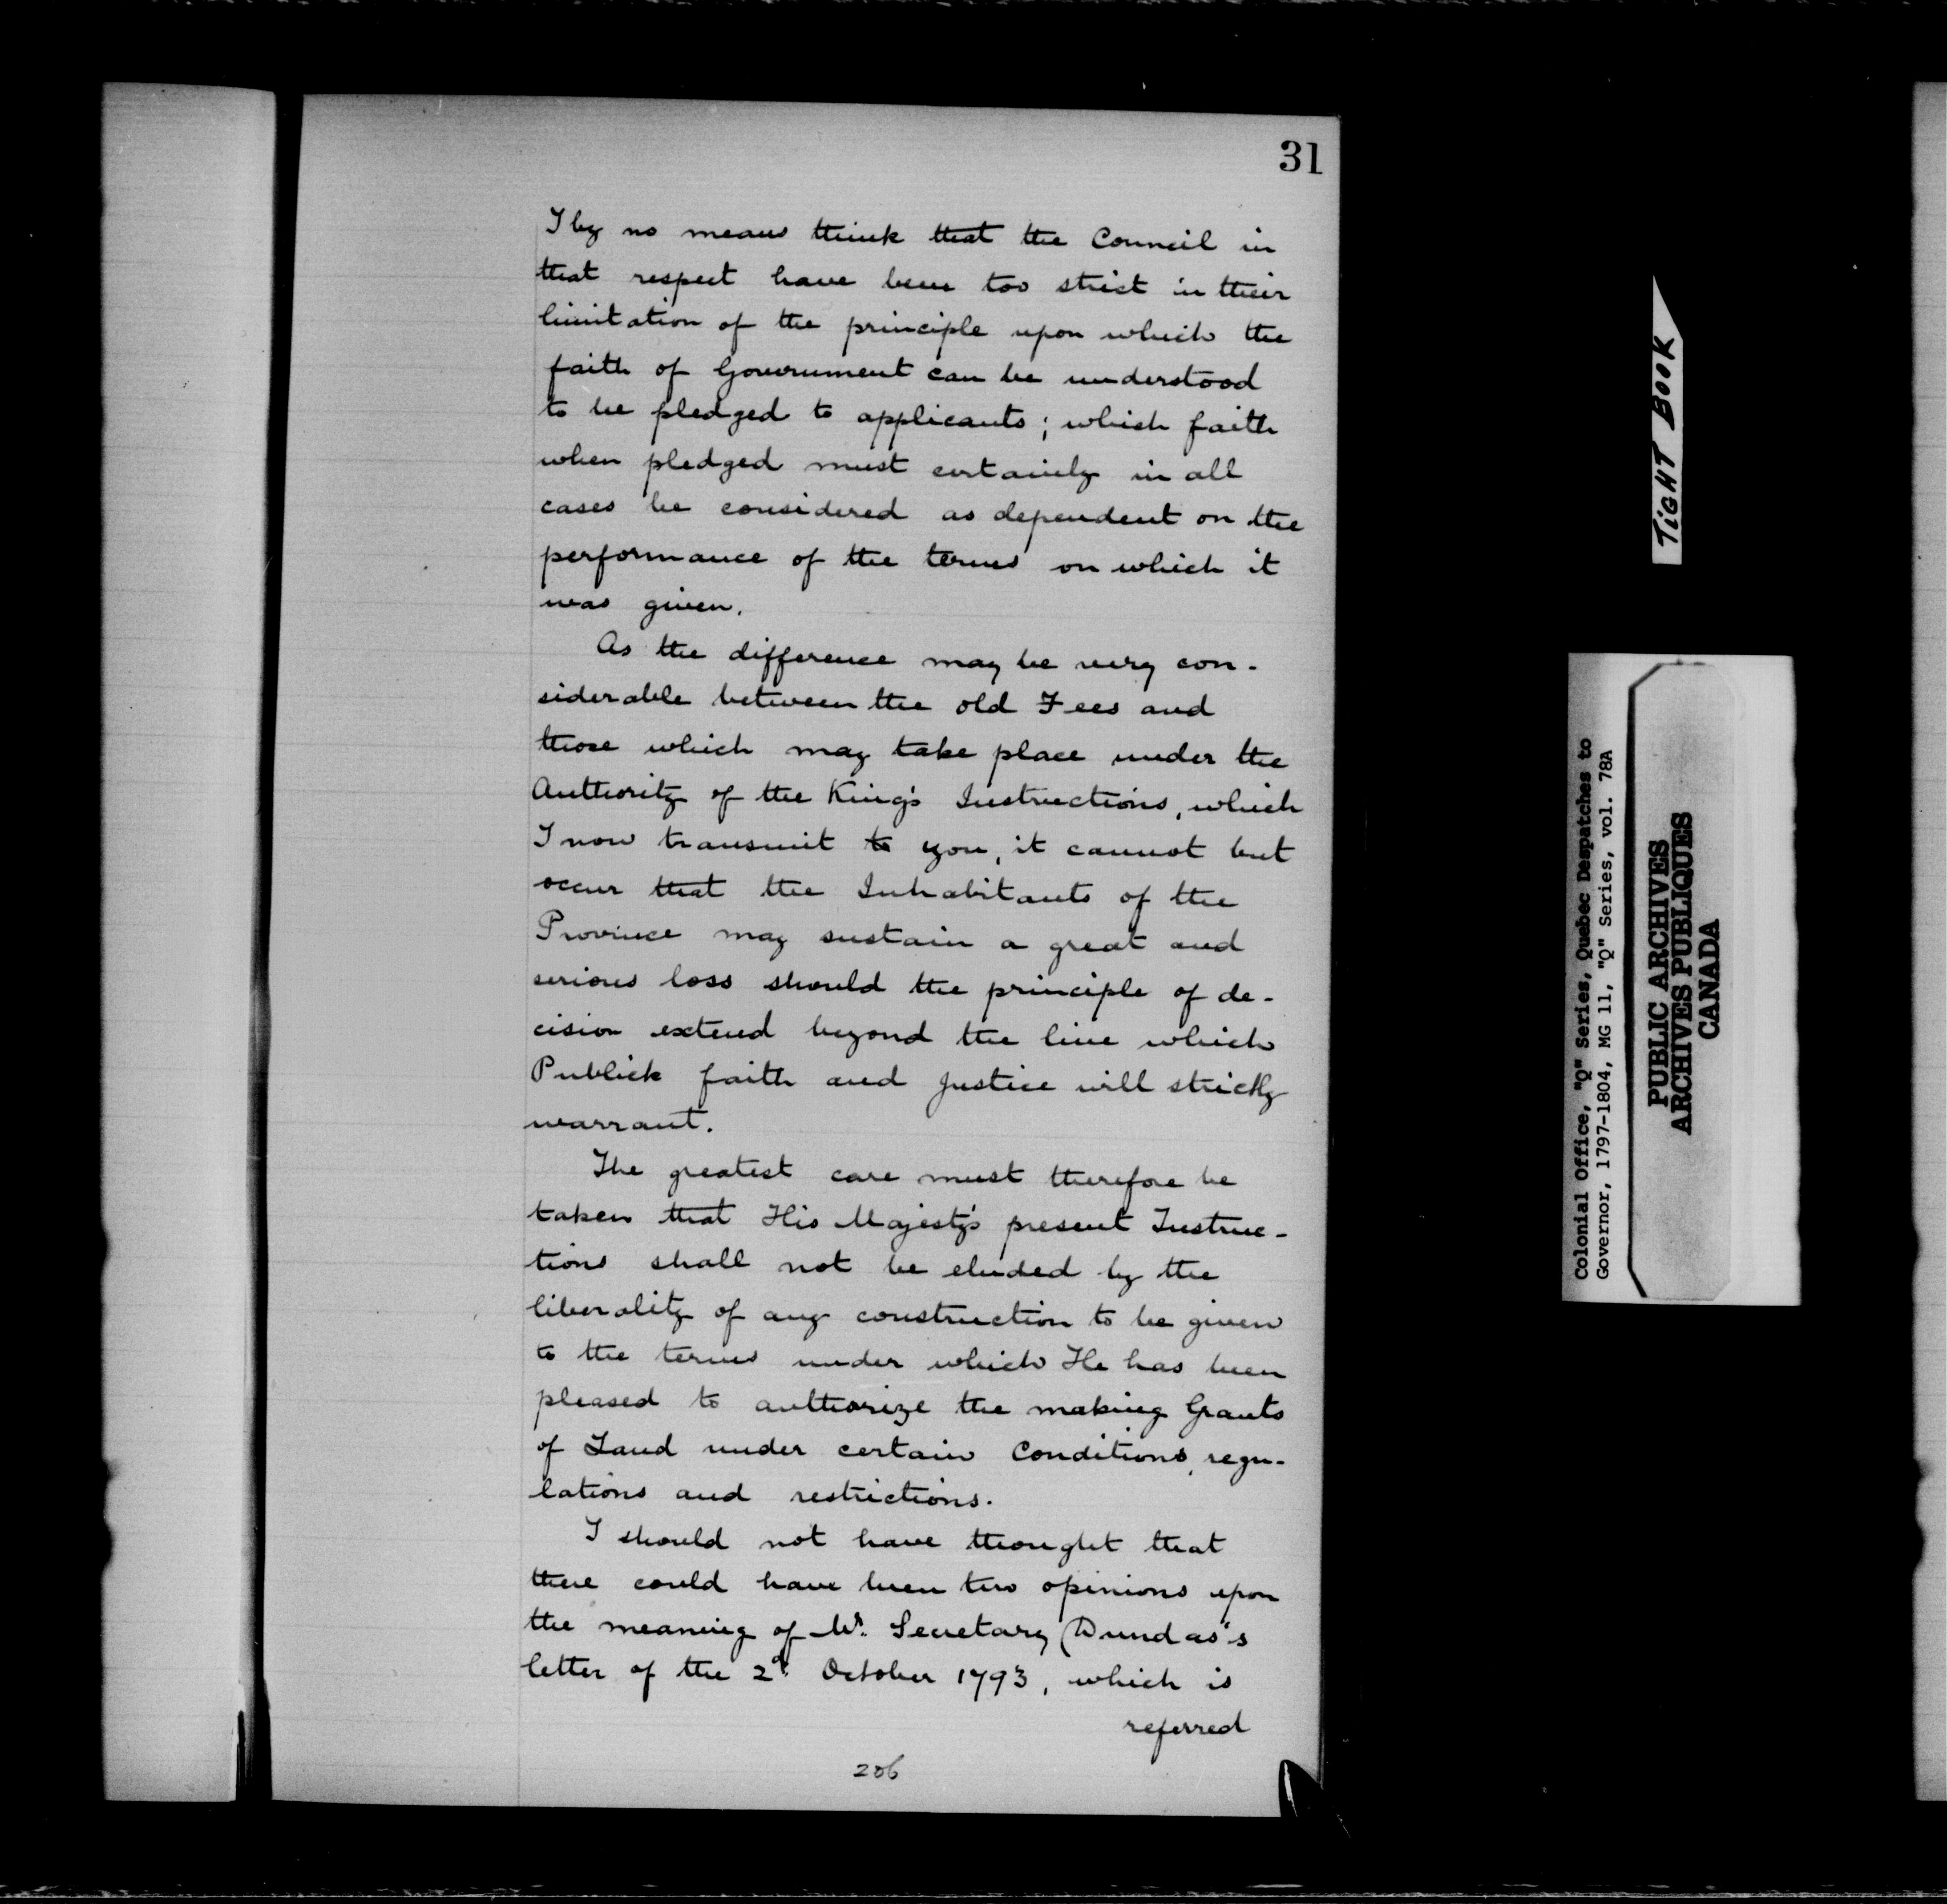 31
I by no means think that the Council in
that respect have been too strict in their
limitation of the principle upon which the
faith of Government can be understood
to be pledged to applicants; which faith
when pledged must certainly in all
cases be considered as dependent on the
performance of the terms on which it
was given.
As the difference may be very con-
siderable between the old Fees and
those which may take place under the
Authority of the King's Instructions, which
I now transmit to you, it cannot but
occur that the Inhabitants of the
Province may sustain a great and
serious loss should the principle of de-
cision extend beyond the line which
Publick faith and Justice will strictly
warrant.
The greatest care must therefore be
taken that His Majesty's present Instruc-
tions shall not be eluded by the
liberality of any construction to be given
to the terms under which He has been
pleased to authorize the making Grants
of Land under certain Conditions, regu-
lations and restrictions.
I should not have thought that
there could have been two opinions upon
the meaning of Mr. Secretary Dundas's
letter of the 2d. October 1793, which is
referred
206
TIGHT BOOK
Colonial Office, "Q" Series, Quebec Despatches to
Governor, 1797-1804, MG 11, "Q" Series, vol. 78A
PUBLIC ARCHIVES
ARCHIVES PUBLIQUES
CANADA